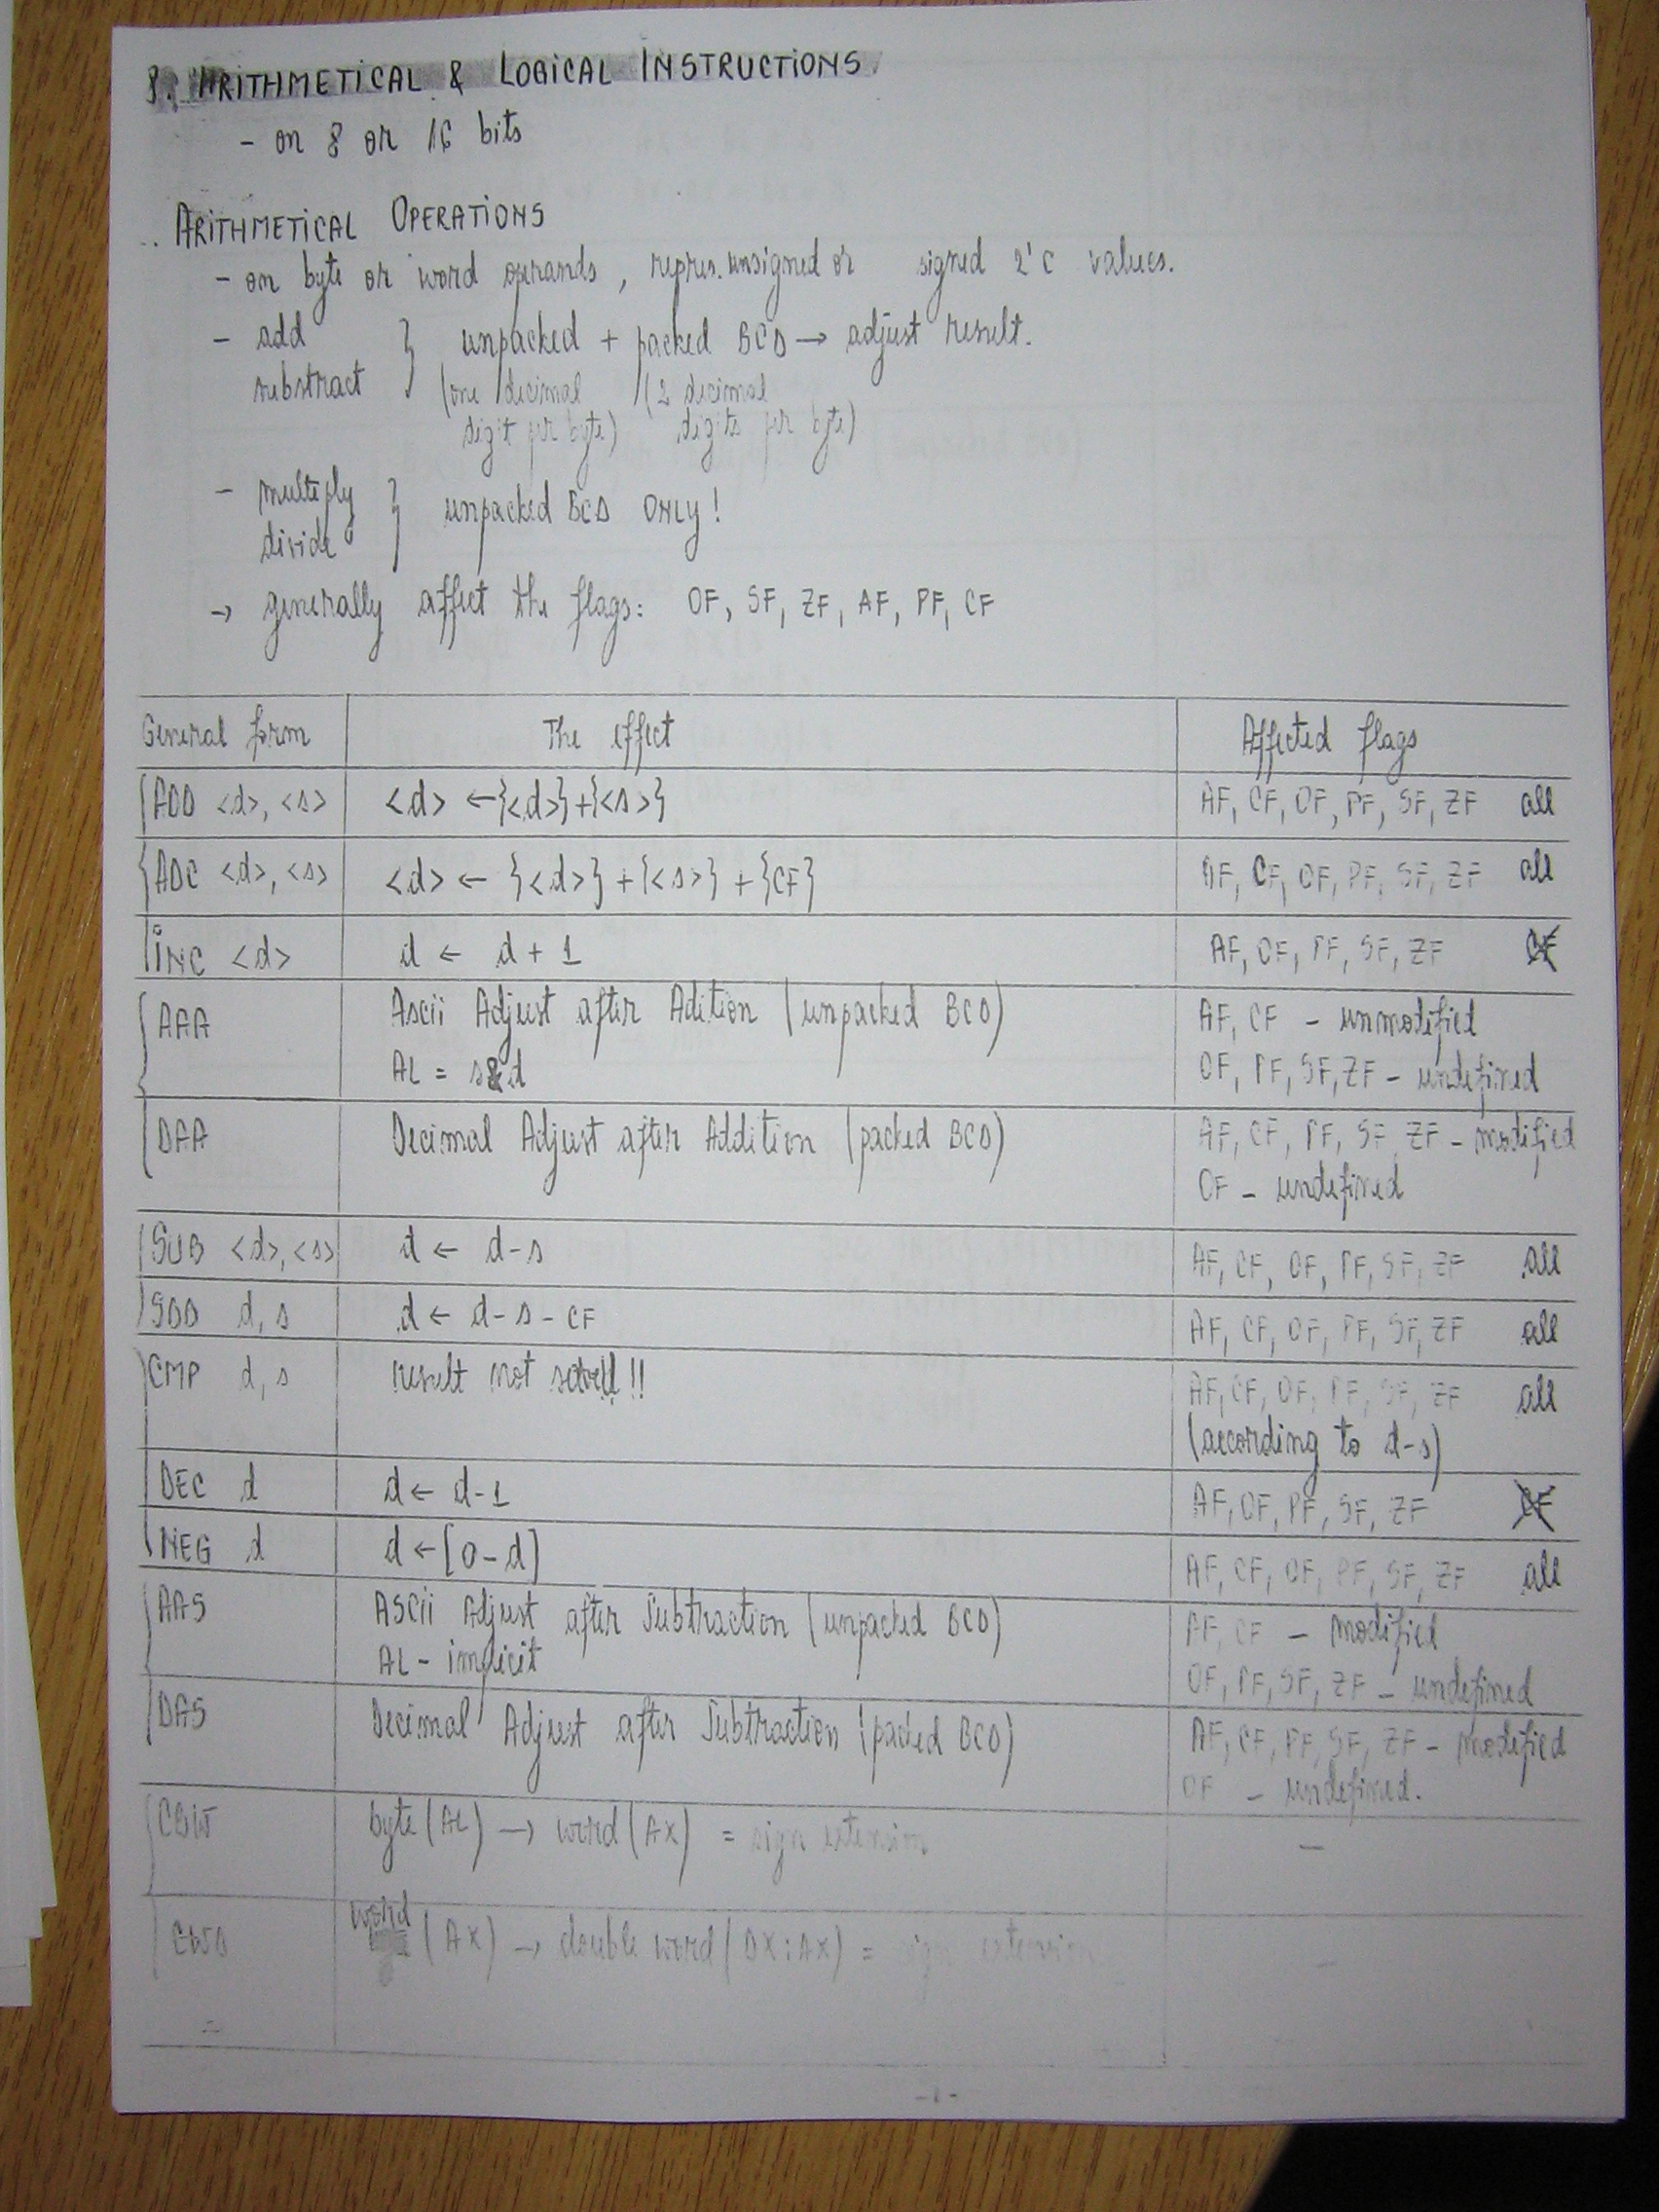 8. ARITHMETICAL & LOGICAL INSTRUCTIONS.
- on 8 or 16 bits
ARITHMETICAL OPERATIONS
- on byte or word operands, repres. unsigned or signed 2'c values.
- add } unpacked + packed BCD → adjust result.
substract (one decimal (2 decimal
digit per byte) digits per byte)
- multiply } unpacked BCD ONLY!
divide
→ generally affect the flags: OF, SF, ZF, AF, PF, CF
General form The effect Affected flags
ADD <d>, <s> <d> ← {<d>}+{<s>} AF, CF, OF, PF, SF, ZF all
ADC <d>, <s> <d> ← {<d>} + {<s>} + {CF} AF, CF, OF, PF, SF, ZF all
INC <d> d ← d + 1 AF, OF, PF, SF, ZF CF
AAA Ascii Adjust after Adition (unpacked BCD) AF, CF - unmodified
AL = s&d OF, PF, SF, ZF - undefined
DAA Decimal Adjust after Addition (packed BCD) AF, CF, PF, SF ZF - modified
OF - undefined
SUB <d>, <s> d ← d-s AF, CF, OF, PF, SF, ZF all
SBB d, s d ← d-s-CF AF, CF, OF, PF, SF, ZF all
CMP d, s result not saved!!! AF, CF, OF, PF, SF, ZF all
(according to d-s)
DEC d d ← d-1 AF, OF, PF, SF, ZF CF
NEG d d ← [0-d] AF, CF, OF, PF, SF, ZF all
AAS ASCii Adjust after Subtraction (unpacked BCD) AF, CF - modified
AL - implicit OF, PF, SF, ZF - undefined
DAS Decimal Adjust after Subtraction (packed BCD) AF, CF, PF, SF, ZF - modified
OF - undefined.
CBW byte (AL) → word (AX) = sign extension -
CWD word (AX) → double word (DX:AX) = sign extension -
-1-